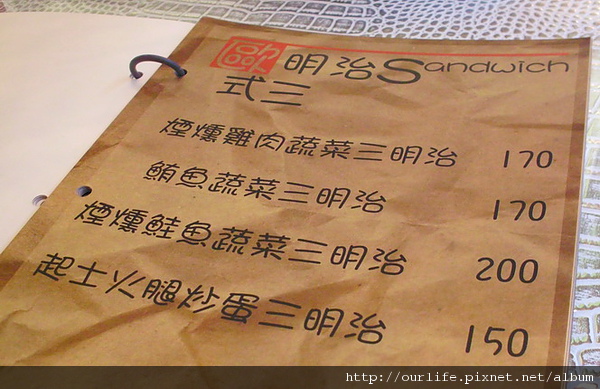 明治Sandwich
式三
煙燻雞肉蔬菜三明治 170
鮪魚蔬菜三明治 170
煙燻鮭魚蔬菜三明治 200
起士火腿炒蛋三明治 150
http://ourlife.pixnet.net/album